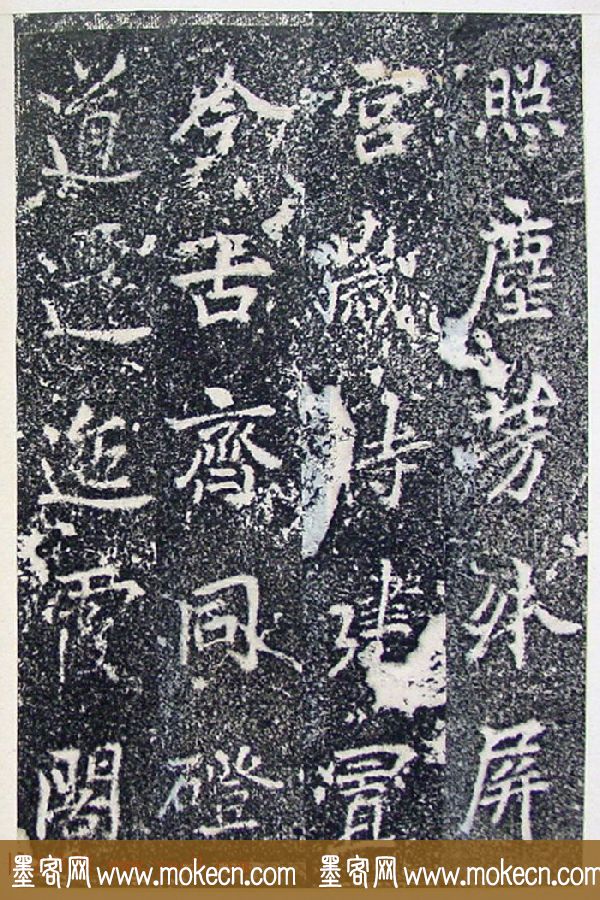 照塵屏
宮時建
今古齊同磴
道邐迤霞閣
墨客网 www.mokecn.com 墨客网 www.mokecn.com